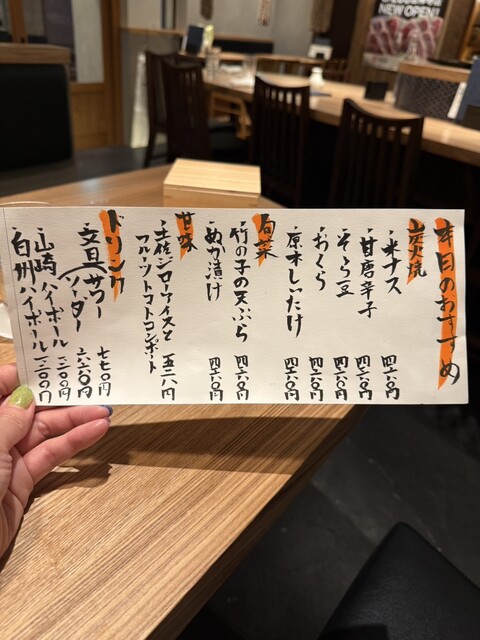 NEW OPEN!
本日のおすすめ
炭火焼
・米ナス 四六〇円
・甘唐辛子 四六〇円
・そら豆 四六〇円
・おくら 四六〇円
・原木しいたけ 四六〇円
旬菜
・竹の子の天ぷら 四六〇円
・ぬか漬け 四六〇円
甘味
・土佐ジローアイスと 五二八円
フルーツトマトコンポート
ドリンク
・文旦サワー 七七〇円
ソーダー 六六〇円
・山崎ハイボール
・白州ハイボール